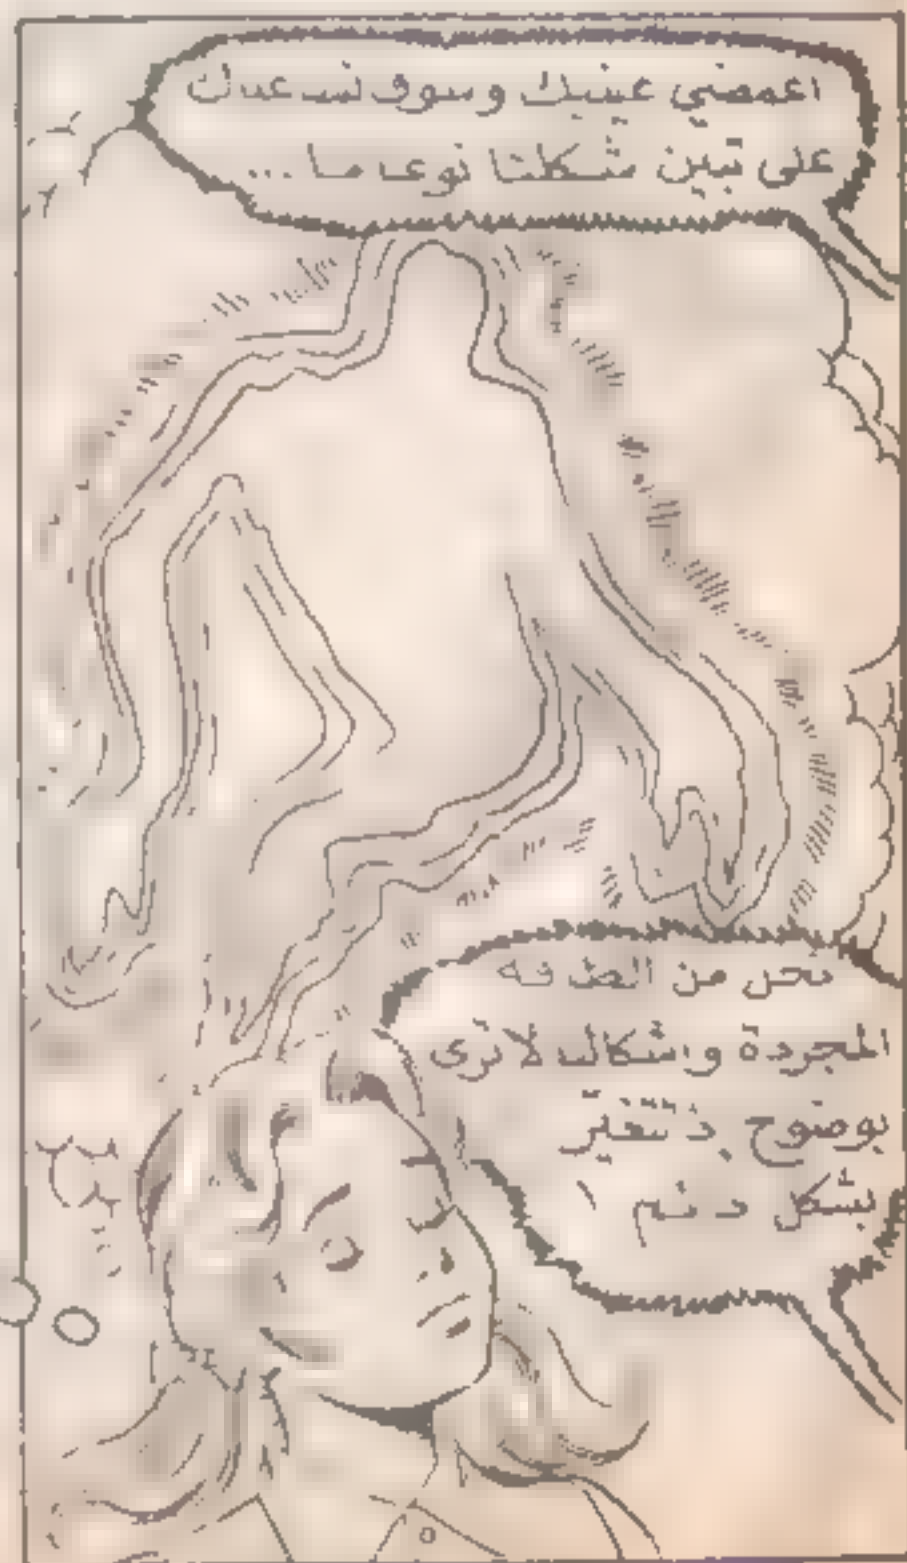 اغمضي عينيك وسوف نساعدك
على تبين شكلنا نوعا ما...
نحن من الطاقة
المجردة واشكالنا لا ترى
بوضوح و تتغير
بشكل دائم